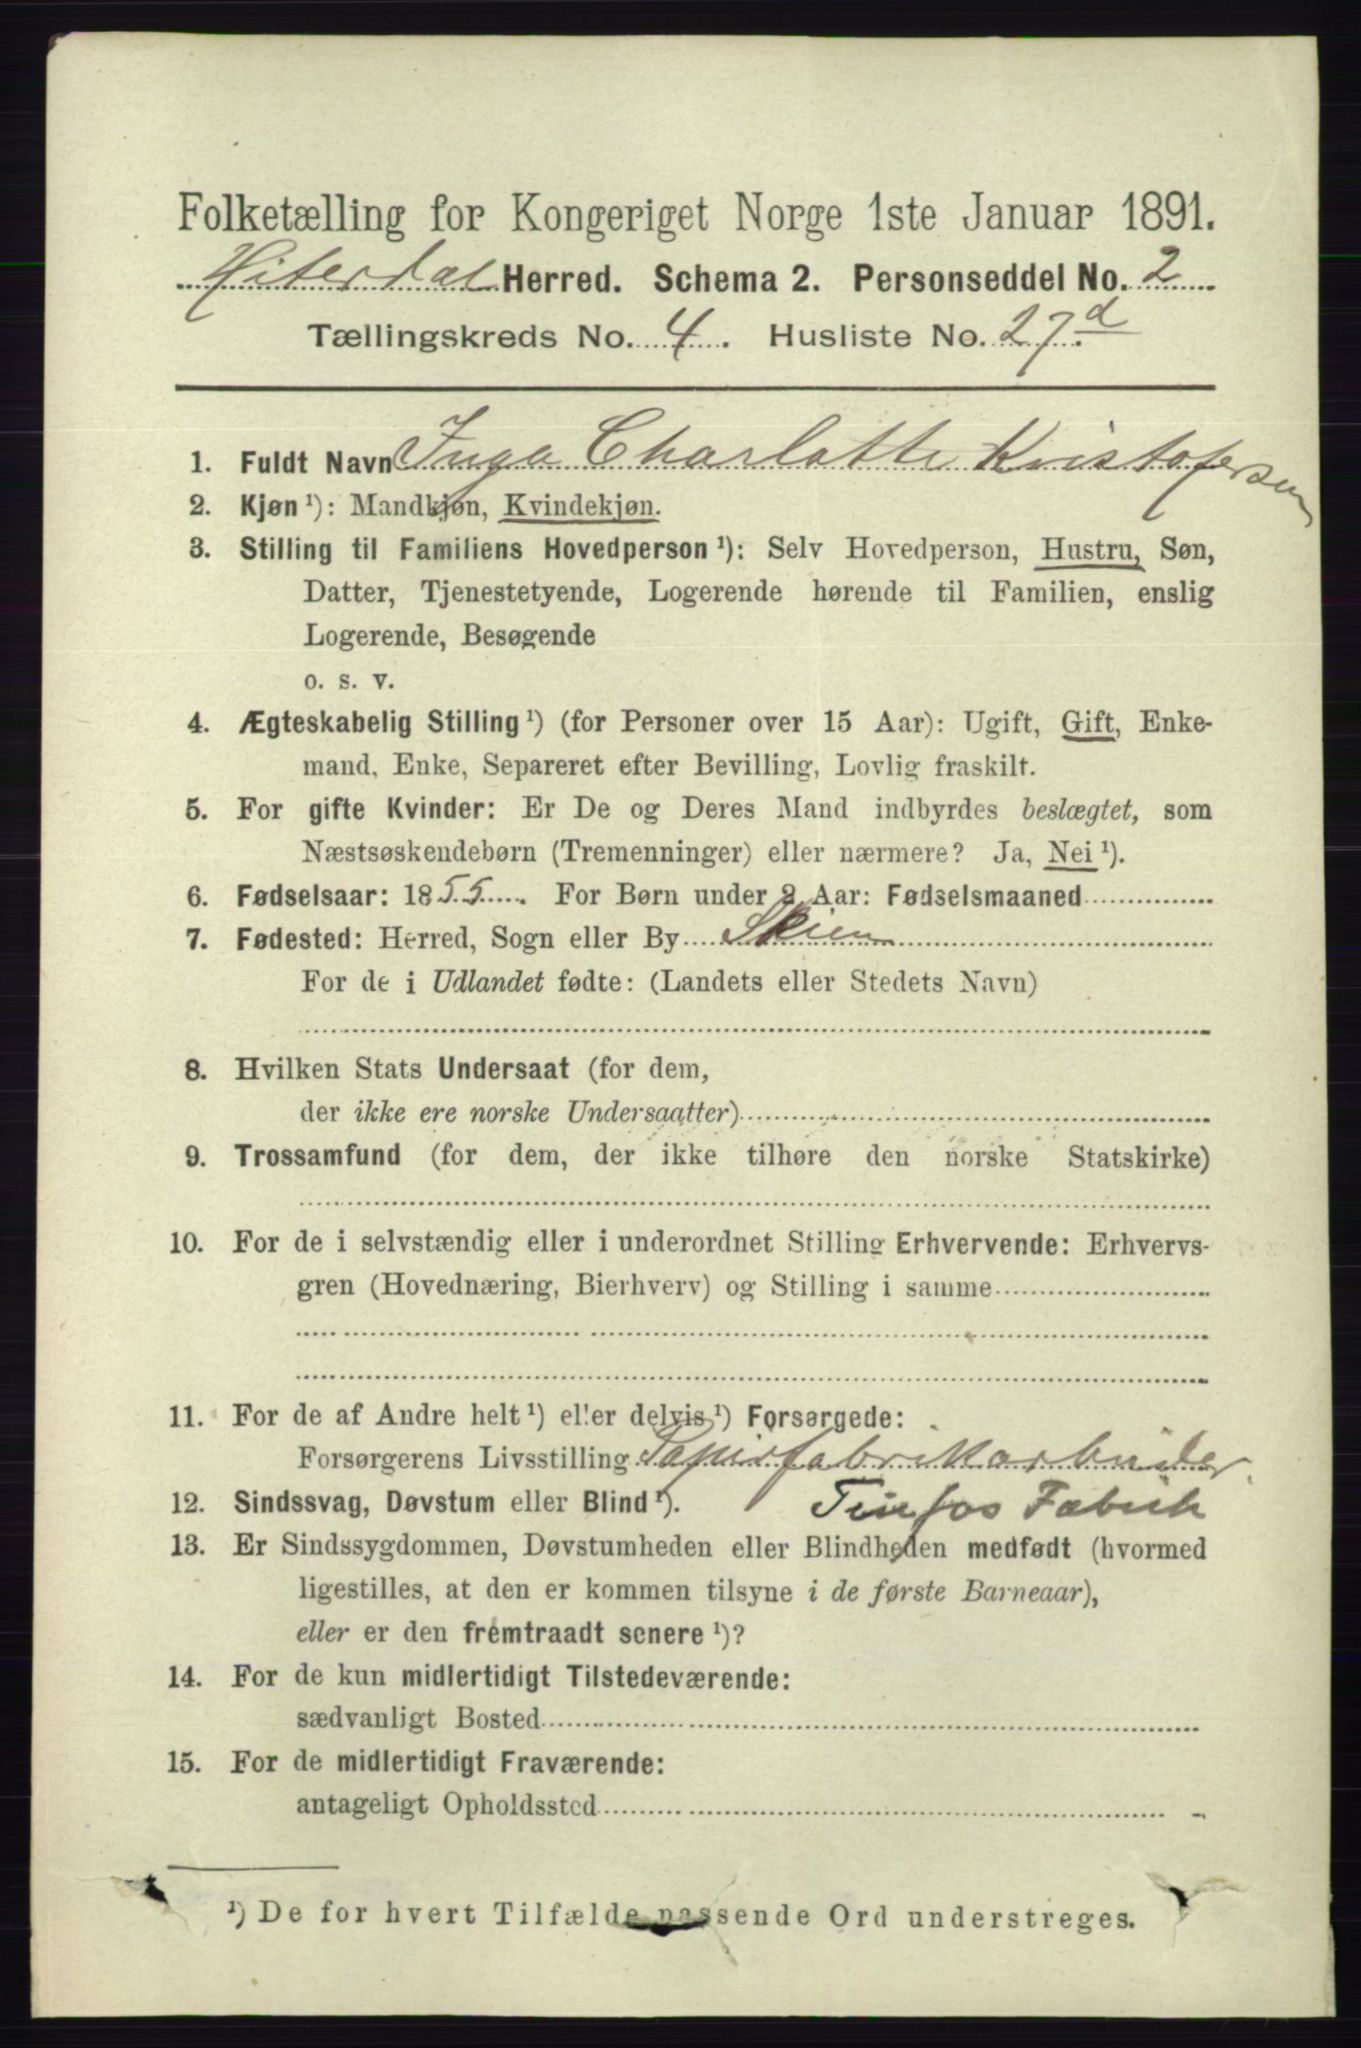 Folketælling for Kongeriget Norge 1ste Januar 1891.
Hiterdal Herred. Schema 2. Personseddel No. 2
Tællingskreds No. 4. Husliste No. 27.d
1. Fuldt Navn Inga Charlotte Kristofersen
2. Kjøn ¹): Mandkjøn, Kvindekjøn.
3. Stilling til Familiens Hovedperson ¹): Selv Hovedperson, Hustru, Søn,
Datter, Tjenestetyende, Logerende hørende til Familien, enslig
Logerende, Besøgende
o. s. v.
4. Ægteskabelig Stilling ¹) (for Personer over 15 Aar): Ugift, Gift, Enke-
mand, Enke, Separeret efter Bevilling, Lovlig fraskilt.
5. For gifte Kvinder: Er De og Deres Mand indbyrdes beslægtet, som
Næstsøskendebørn (Tremenninger) eller nærmere? Ja, Nei ¹).
6. Fødselsaar: 1855. For Børn under 2 Aar: Fødselsmaaned
7. Fødested: Herred, Sogn eller By Skien
For de i Udlandet fødte: (Landets eller Stedets Navn)
8. Hvilken Stats Undersaat (for dem,
der ikke ere norske Undersaatter)
9. Trossamfund (for dem, der ikke tilhøre den norske Statskirke)
10. For de i selvstændig eller i underordnet Stilling Erhvervende: Erhvervs-
gren (Hovednæring, Bierhverv) og Stilling i samme
11. For de af Andre helt ¹) eller delvis ¹) Forsørgede:
Forsørgerens Livsstilling Papirfabrikarbeider
12. Sindssvag, Døvstum eller Blind ¹). Tinfos Fabrik
13. Er Sindssygdommen, Døvstumheden eller Blindheden medfødt (hvormed
ligestilles, at den er kommen tilsyne i de første Barneaar),
eller er den fremtraadt senere ¹)?
14. For de kun midlertidigt Tilstedeværende:
sædvanligt Bosted
15. For de midlertidigt Fraværende:
antageligt Opholdssted
¹) De for hvert Tilfælde passende Ord understreges.